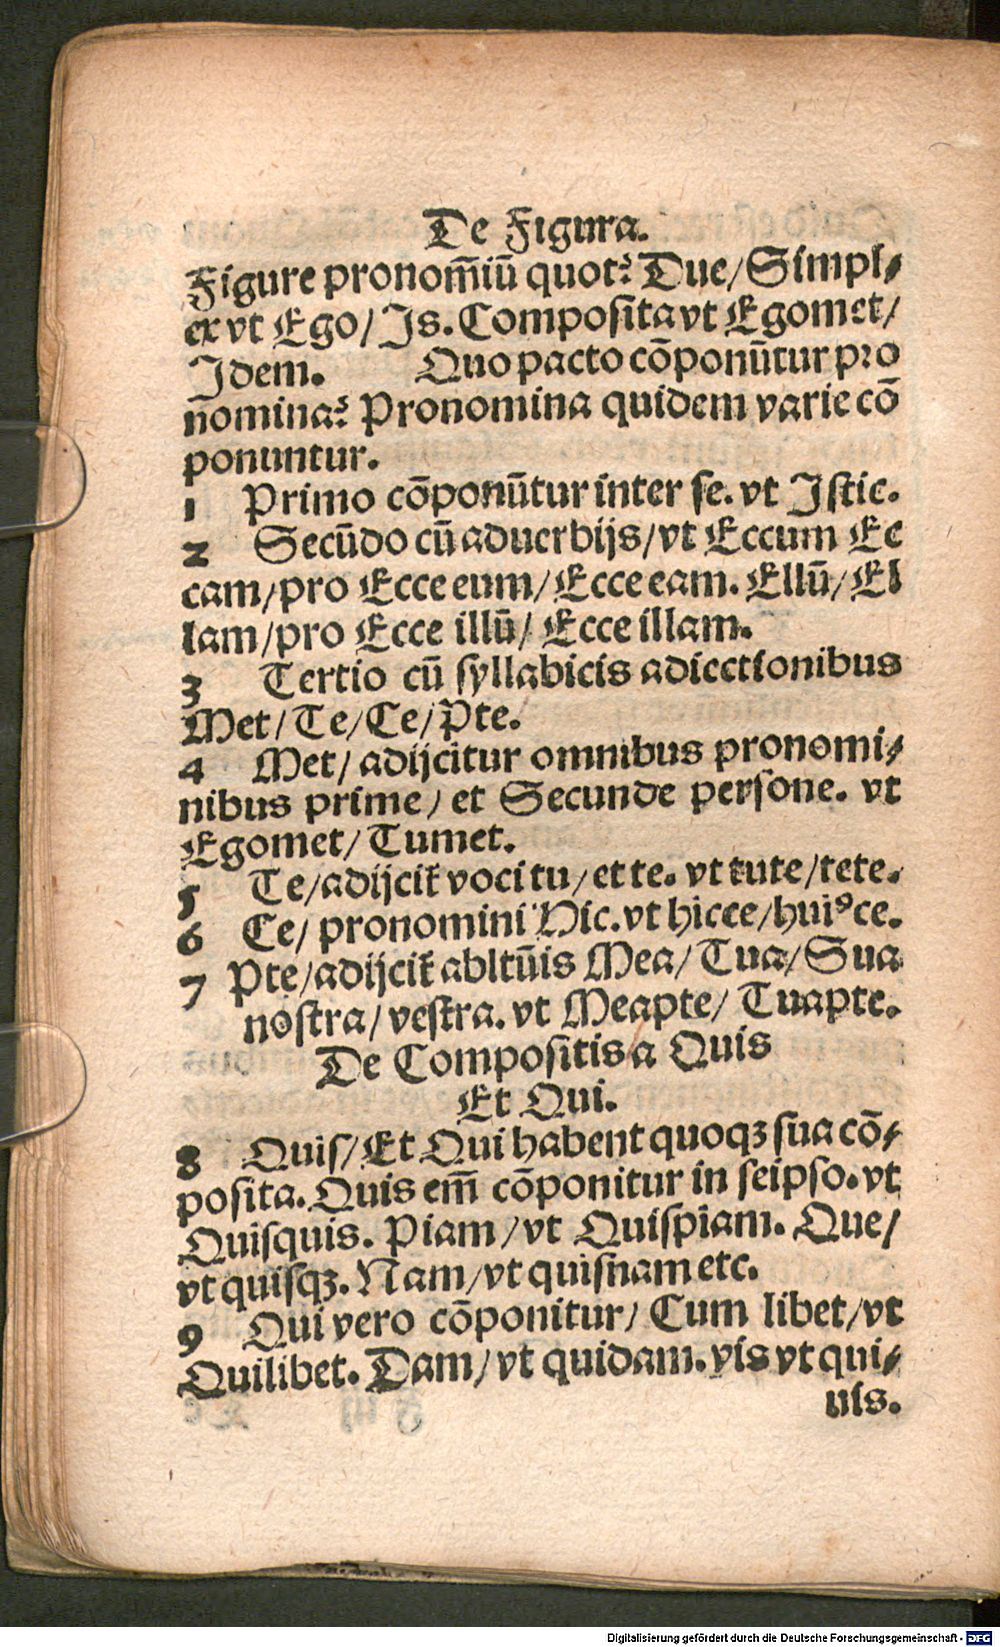 De Figura.
Figure pronom̄iū quot? Due/Simpl⸗
ex vt Ego/Is. Composita vt Egomet/
Idem. Quo pacto cōponūtur pro
nomina? Pronomina quidem varie cō
ponuntur.
1 Primo cōponūtur inter se. vt Istic.
2 Secūdo cū aduerbijs/vt Eccum Ec
cam/pro Ecce eum/Ecce eam. Ellū/El
lam/pro Ecce illū/ Ecce illam.
3 Tertio cū syllabicis adiectionibus
Met/Te/Ce/Pte.
4 Met/adijcitur omnibus pronomi⸗
nibus prime/et Secunde persone. vt
Egomet/Tumet.
5 Te/adijcit̄ voci tu/et te. vt tute/tete.
6 Ce/pronomini Hic. vt hicce/huiꝰce.
7 Pte/adijcit̄ abltūis Mea/Tua/Sua
nostra/vestra. vt Meapte/Tuapte.
De Compositis a Quis
Et Qui.
8 Quis/Et Qui habent quoqꝫ sua cō⸗
posita. Quis em̄ cōponitur in seipso. vt
Quisquis. Piam/vt Quispiam. Que/
vt quisqꝫ. Nam/vt quisnam etc.
9 Qui vero cōponitur/Cum libet/vt
Quilibet. Dam/vt quidam. vis vt qui⸗
uis.
Digitalisierung gefördert durch die Deutsche Forschungsgemeinschaft - DFG